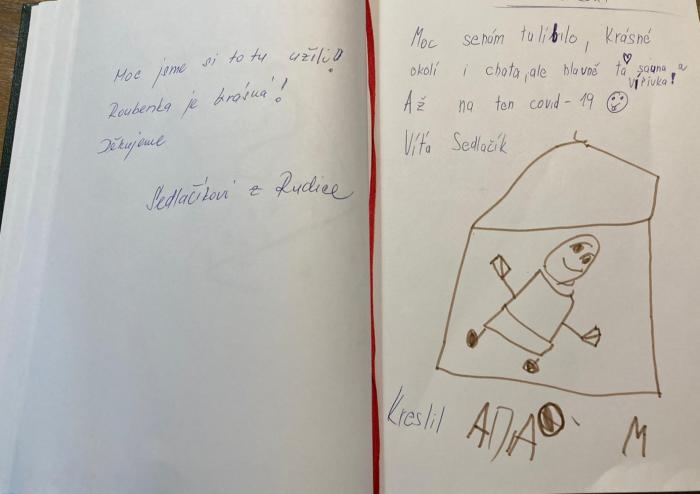 Moc jsme si to tu užili!
Roubenka je krásná!
Děkujeme
Sedlačíkovi z Rudice
Moc senám tulíbilo, Krásné
okolí i chata, ale hlavně ta sauna a
vířivka!
Až na ten covid-19
Víťa Sedlačík
Kreslil ADA M